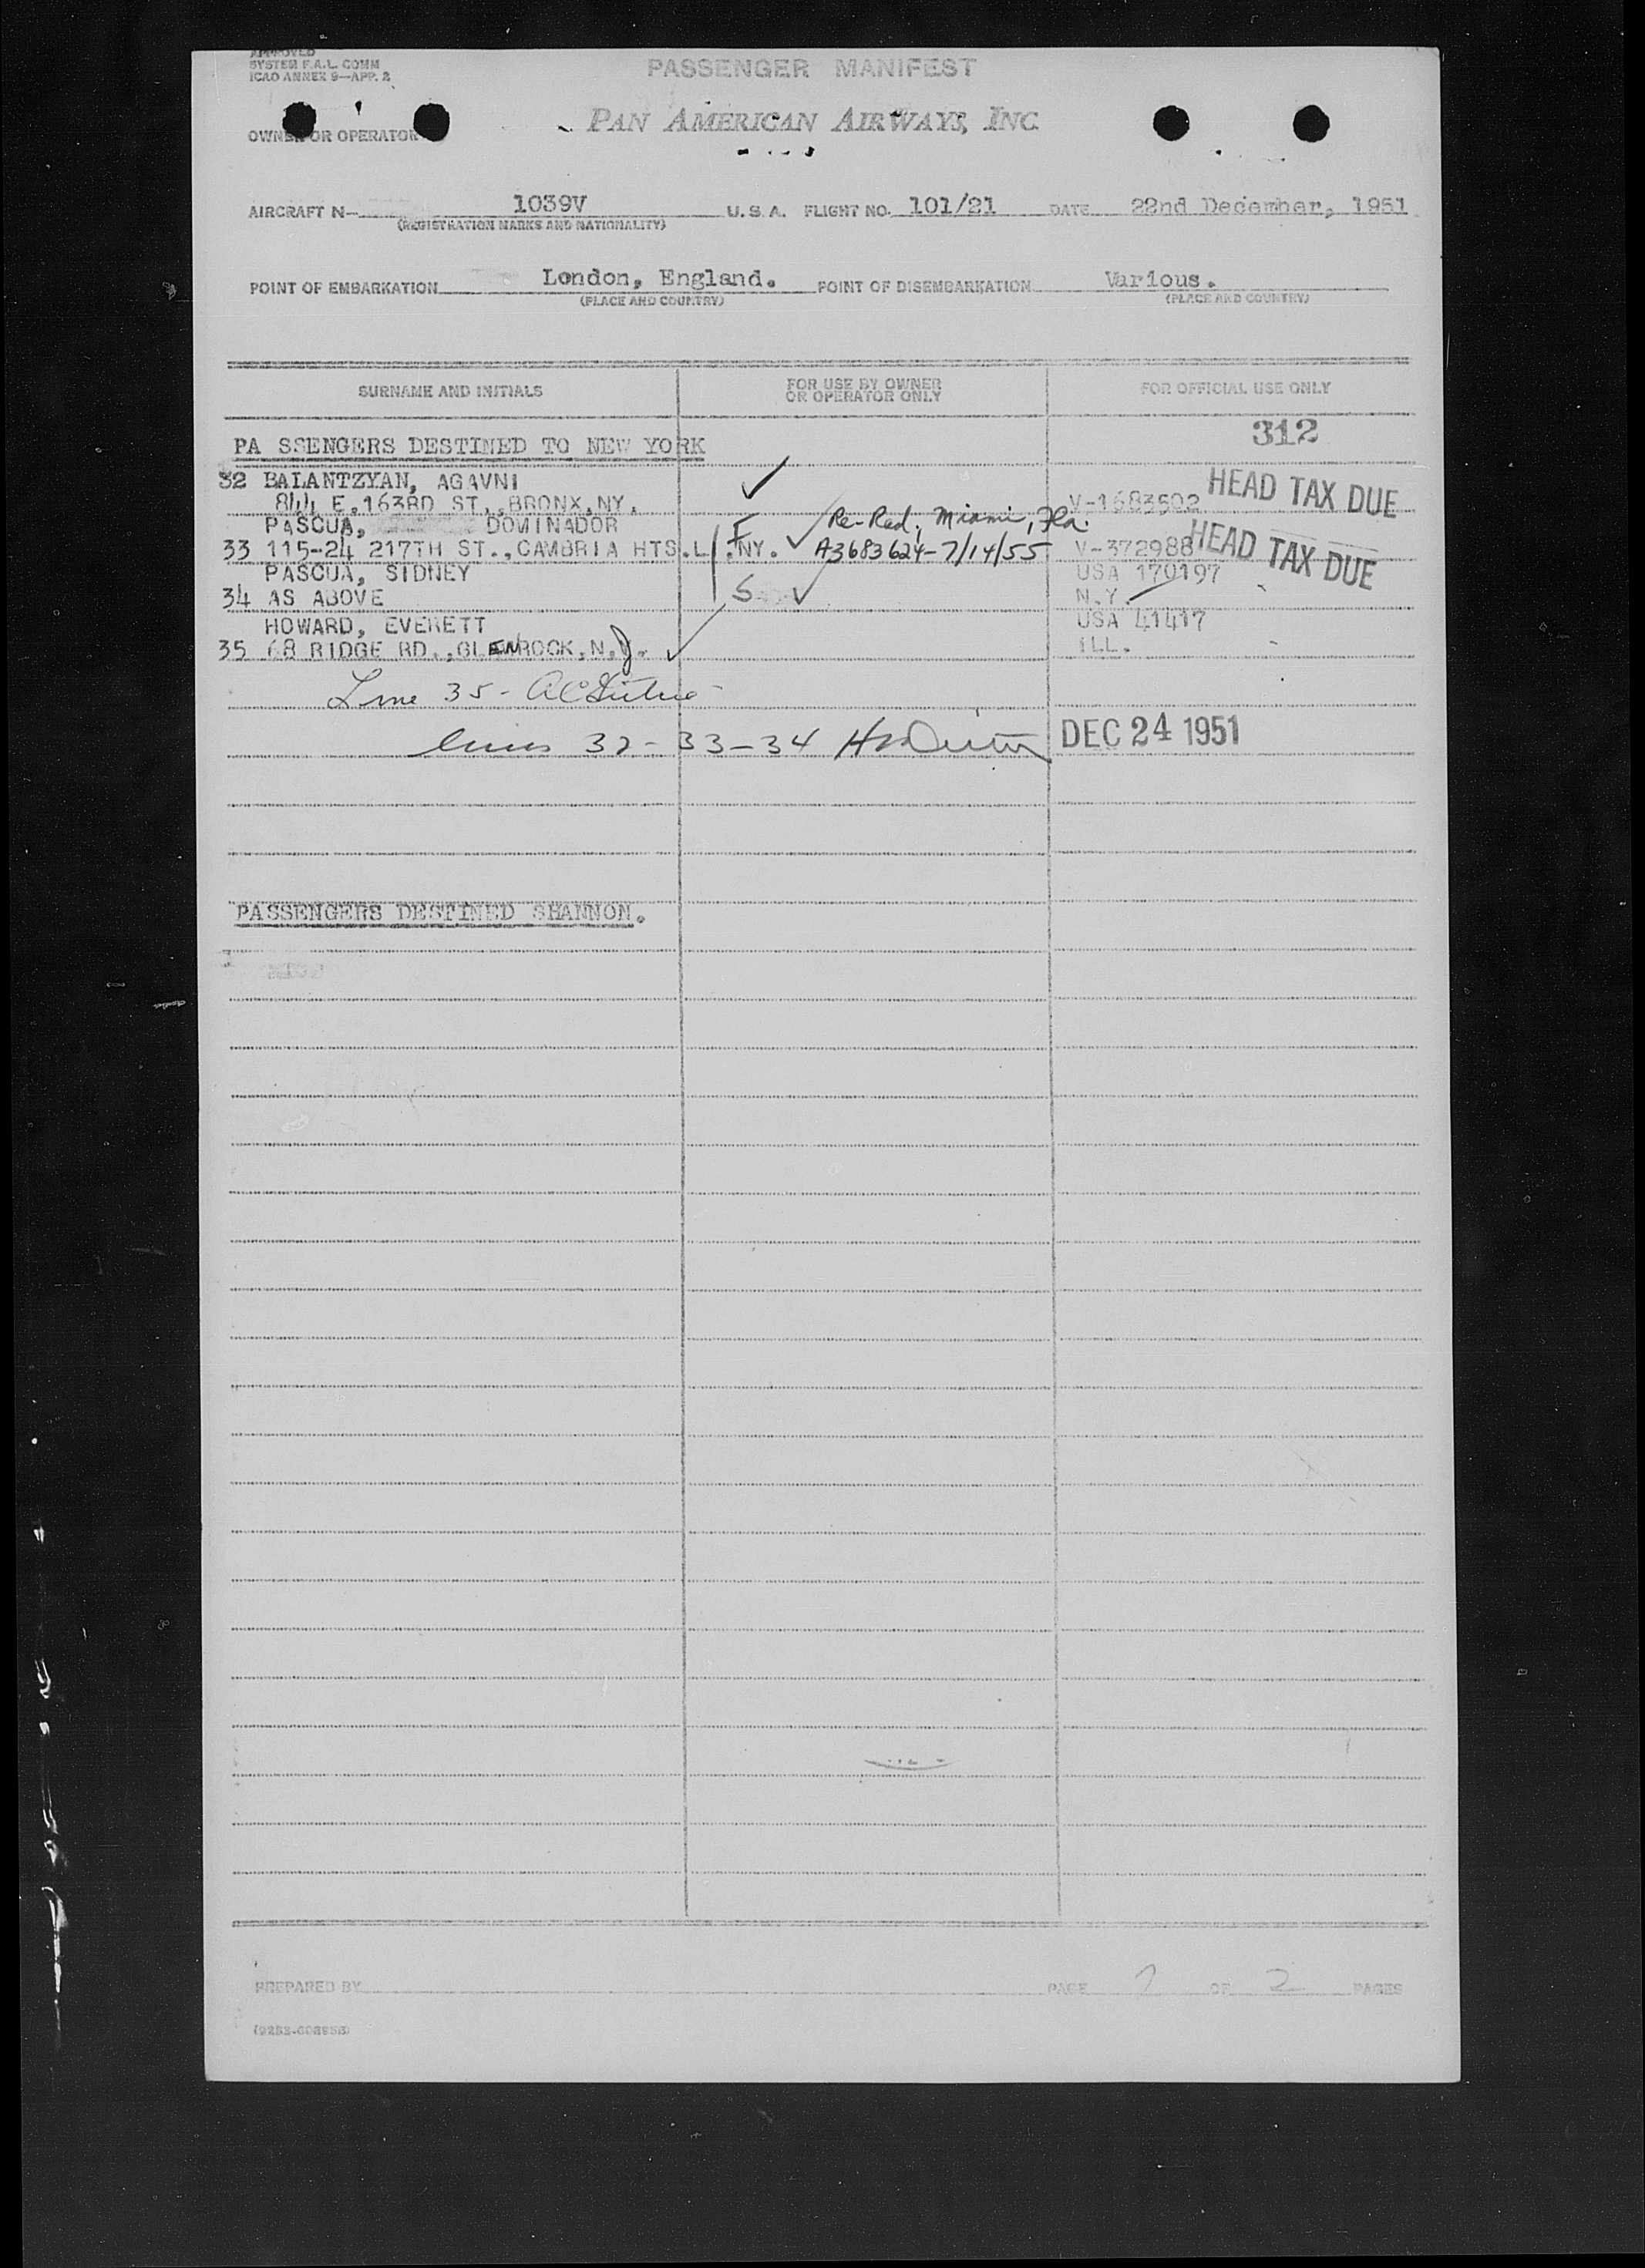 APPROVED
SYSTEM F.A.L. COMM
ICAO ANNEX 9—APP. 2
PASSENGER MANIFEST
OWNER OR OPERATOR
PAN AMERICAN AIRWAYS, INC.
AIRCRAFT N— 1039V U.S.A. FLIGHT NO. 101/21 DATE 22nd December, 1951
(REGISTRATION MARKS AND NATIONALITY)
POINT OF EMBARKATION London, England. POINT OF DISEMBARKATION Various.
(PLACE AND COUNTRY) (PLACE AND COUNTRY)
SURNAME AND INITIALS FOR USE BY OWNER OR OPERATOR ONLY FOR OFFICIAL USE ONLY
312
PA SSENGERS DESTINED TO NEW YORK
32 BALANTZYAN, AGAVNI HEAD TAX DUE
844 E.163RD ST.,BRONX,NY. V-1683502
PASCUA, DOMINADOR F Re-Red, Miami, Fla.
33 115-24 217TH ST.,CAMBRIA HTS.L.I.NY. A3683624-7/14/55 V-372988 HEAD TAX DUE
PASCUA, SIDNEY USA 170197
34 AS ABOVE S N.Y.
HOWARD, EVERETT USA 41417
35 68 RIDGE RD.,GLENROCK,N.J. ILL.
Line 35 -
Lines 32-33-34 DEC 24 1951
PASSENGERS DESTINED SHANNON.
PREPARED BY PAGE 2 OF 2 PAGES